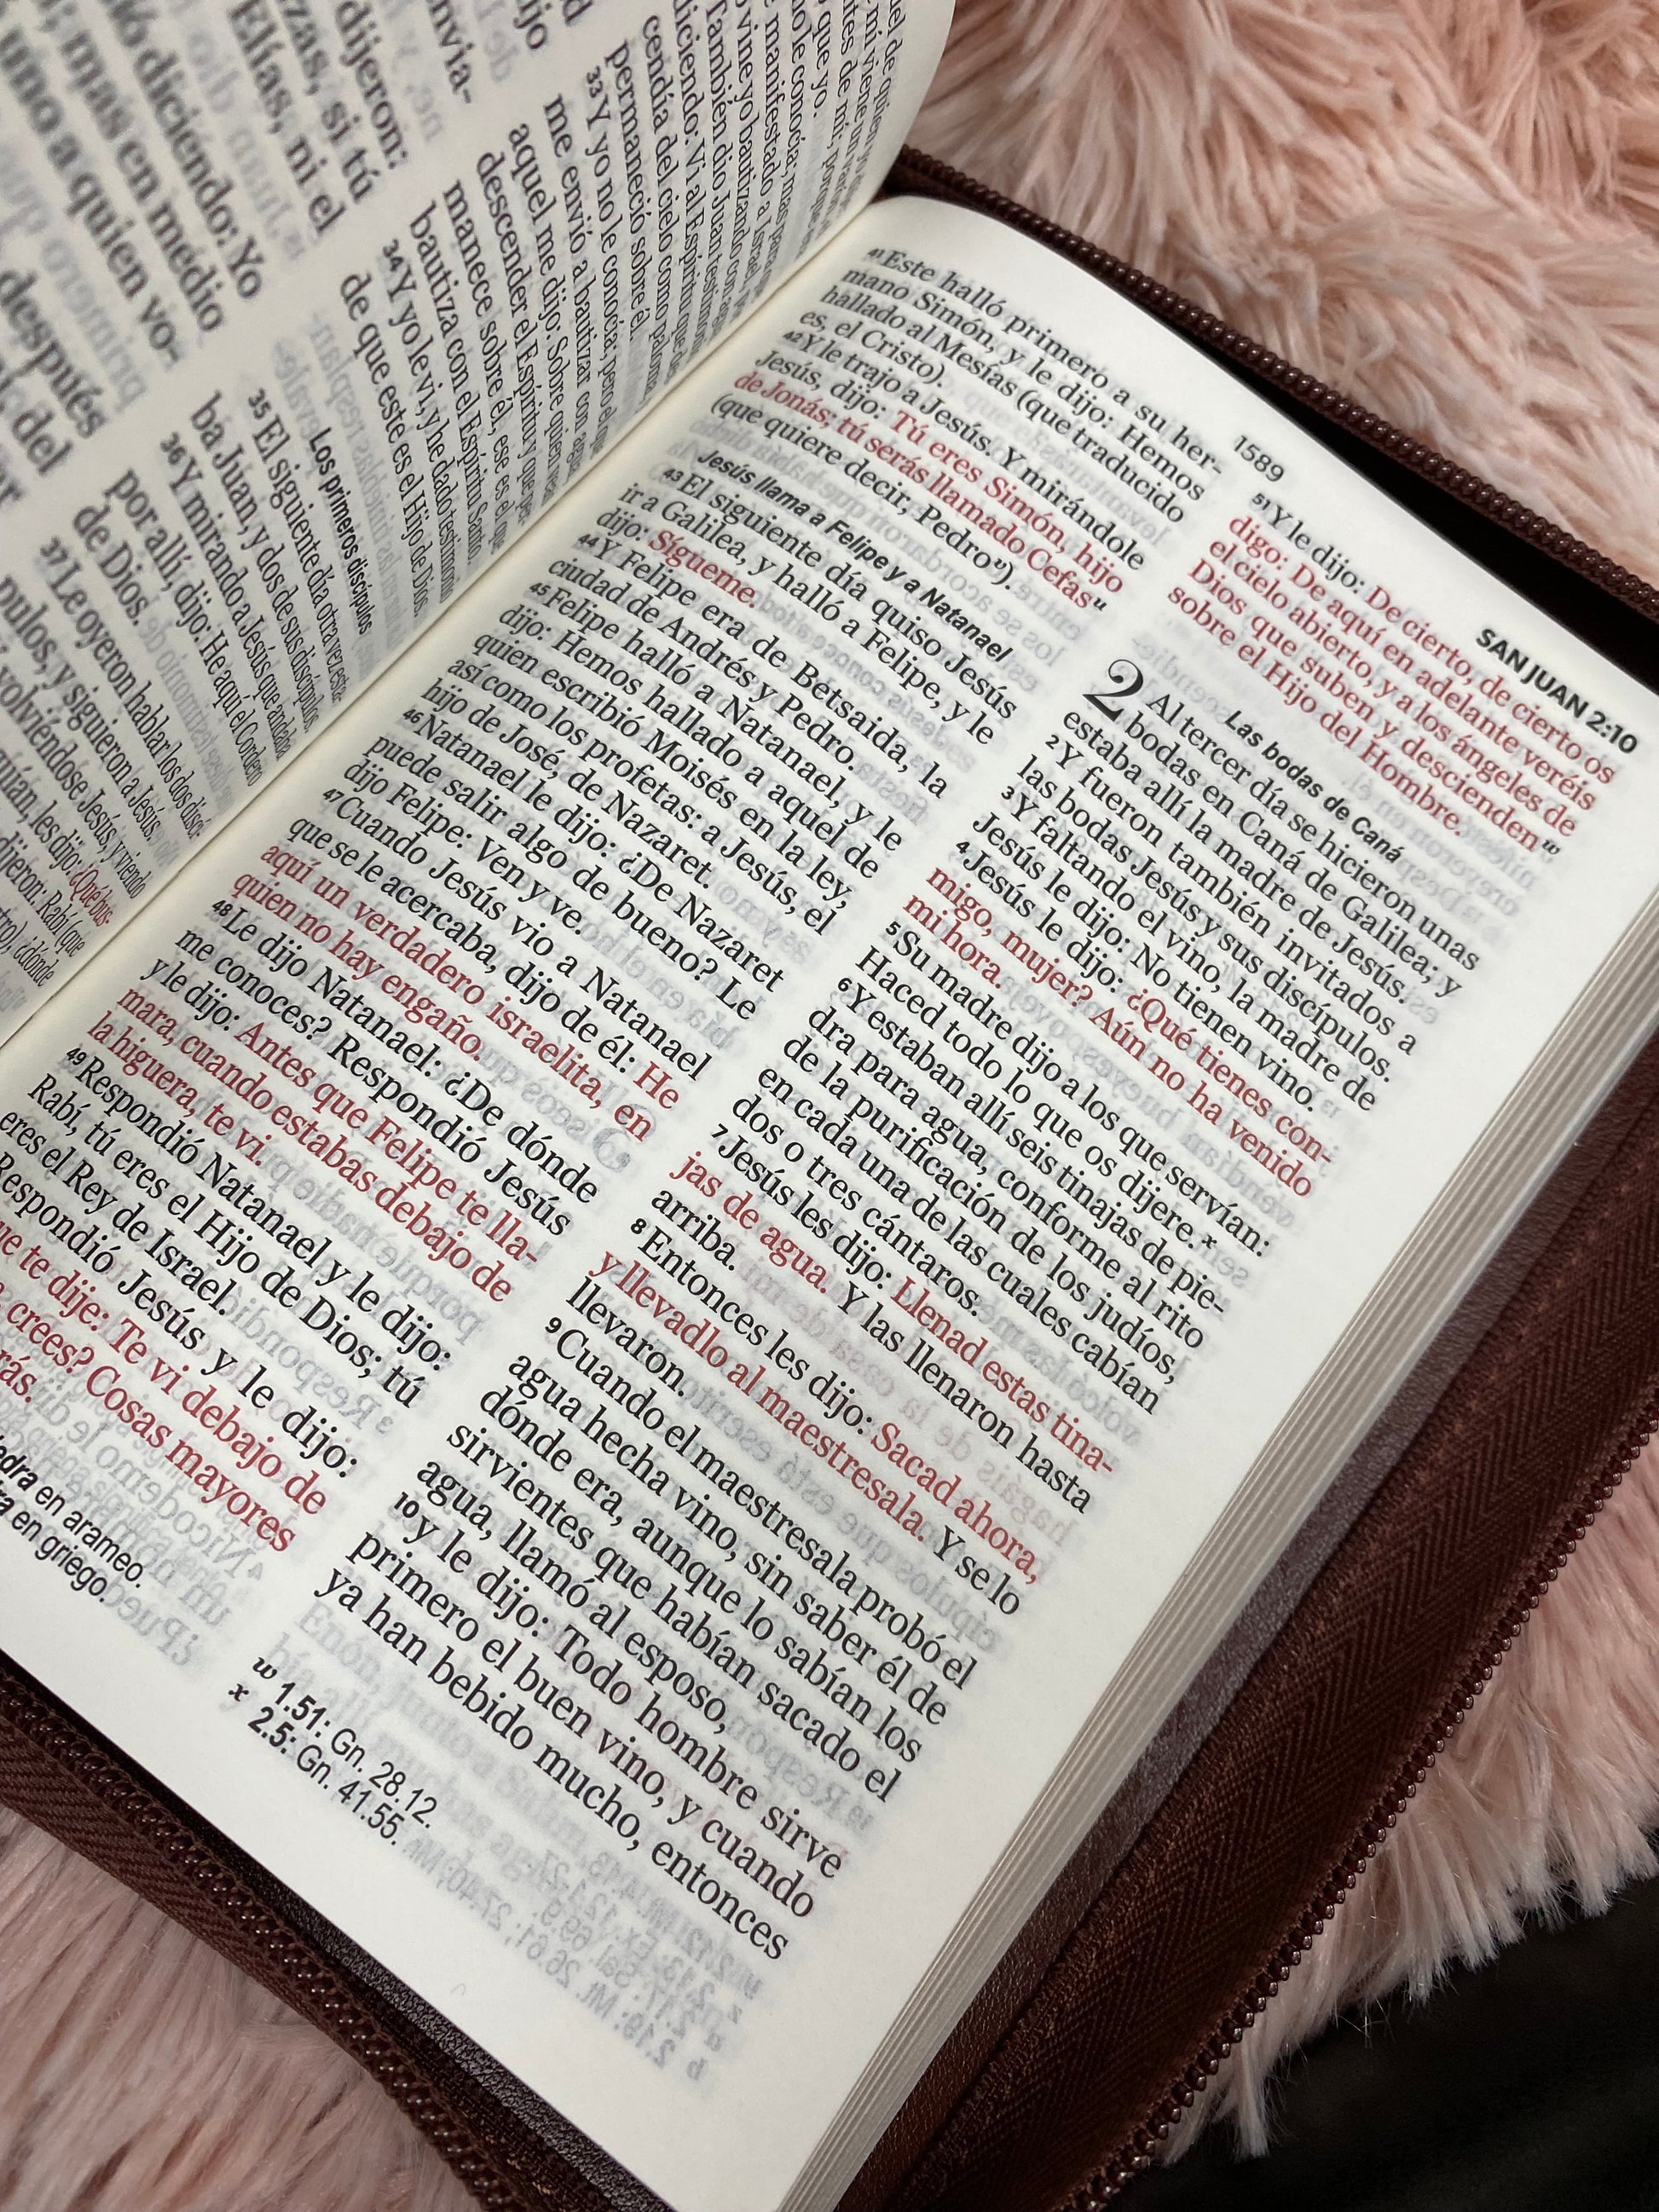 dijo
dijeron:
zas, si tú
Elías, ni el
diciendo: Yo
mas en medio
uno a quien vo-
después
del
cendía del cielo como paloma,
permaneció sobre él.
33 Y yo no le conocía; pero el que
me envió a bautizar con agua,
aquel me dijo: Sobre quien veas
descender el Espíritu y que per-
manece sobre él, ese es el que
bautiza con el Espíritu Santo.
34 Y yo le vi, y he dado testimonio
de que este es el Hijo de Dios.
Los primeros discípulos
35 El siguiente día otra vez esta-
ba Juan, y dos de sus discípulos.
36 Y mirando a Jesús que andaba
por allí, dijo: He aquí el Cordero
de Dios.
37 Le oyeron hablar los dos discí-
pulos, y siguieron a Jesús.
volviéndose Jesús, y viendo
les dijo: ¿Qué bus-
dijeron: Rabí (que
¿dónde
1589
SAN JUAN 2:10
41 Este halló primero a su her-
mano Simón, y le dijo: Hemos
hallado al Mesías (que traducido
es, el Cristo).
42 Y le trajo a Jesús. Y mirándole
Jesús, dijo: Tú eres Simón, hijo
de Jonás; tú serás llamado Cefas u
(que quiere decir, Pedro v).
Jesús llama a Felipe y a Natanael
43 El siguiente día quiso Jesús
ir a Galilea, y halló a Felipe, y le
dijo: Sígueme.
44 Y Felipe era de Betsaida, la
ciudad de Andrés y Pedro.
45 Felipe halló a Natanael, y le
dijo: Hemos hallado a aquel de
quien escribió Moisés en la ley,
así como los profetas: a Jesús, el
hijo de José, de Nazaret.
46 Natanael le dijo: ¿De Nazaret
puede salir algo de bueno? Le
dijo Felipe: Ven y ve.
47 Cuando Jesús vio a Natanael
que se le acercaba, dijo de él: He
aquí un verdadero israelita, en
quien no hay engaño.
48 Le dijo Natanael: ¿De dónde
me conoces? Respondió Jesús
y le dijo: Antes que Felipe te lla-
mara, cuando estabas debajo de
la higuera, te vi.
49 Respondió Natanael y le dijo:
Rabí, tú eres el Hijo de Dios; tú
eres el Rey de Israel.
Respondió Jesús y le dijo:
te dije: Te vi debajo de
crees? Cosas mayores
en arameo.
en griego.
51 Y le dijo: De cierto, de cierto os
digo: De aquí en adelante veréis
el cielo abierto, y a los ángeles de
Dios que suben y descienden w
sobre el Hijo del Hombre.
Las bodas de Caná
2 Al tercer día se hicieron unas
bodas en Caná de Galilea; y
estaba allí la madre de Jesús.
2 Y fueron también invitados a
las bodas Jesús y sus discípulos.
3 Y faltando el vino, la madre de
Jesús le dijo: No tienen vino.
4 Jesús le dijo: ¿Qué tienes con-
migo, mujer? Aún no ha venido
mi hora.
5 Su madre dijo a los que servían:
Haced todo lo que os dijere. x
6 Y estaban allí seis tinajas de pie-
dra para agua, conforme al rito
de la purificación de los judíos,
en cada una de las cuales cabían
dos o tres cántaros.
7 Jesús les dijo: Llenad estas tina-
jas de agua. Y las llenaron hasta
arriba.
8 Entonces les dijo: Sacad ahora,
y llevadlo al maestresala. Y se lo
llevaron.
9 Cuando el maestresala probó el
agua hecha vino, sin saber él de
dónde era, aunque lo sabían los
sirvientes que habían sacado el
agua, llamó al esposo,
10 y le dijo: Todo hombre sirve
primero el buen vino, y cuando
ya han bebido mucho, entonces
w 1.51: Gn. 28.12.
x 2.5: Gn. 41.55.